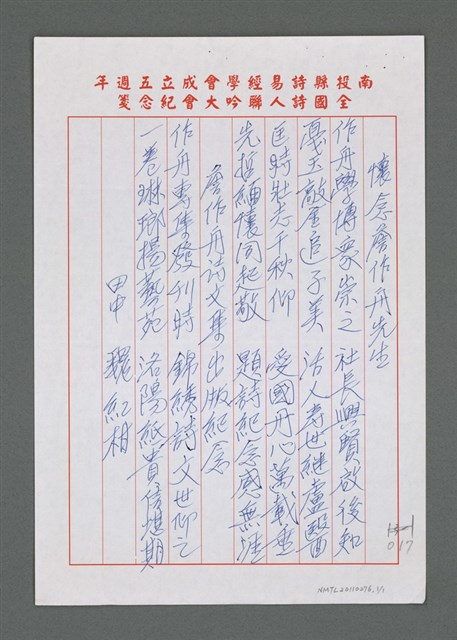 南投縣詩易經學會成立五週年
全國詩人聯吟大會紀念箋
懷念詹作舟先生
作舟學博眾崇之 社長興賢啟後知
戞玉敲金追子美 活人壽世繼盧醫
匡時壯志千秋仰 愛國丹心萬載垂
先哲緬懷同起敬 題詩紀念感無涯
詹作舟詩文集出版紀念
作舟專集發刊時 錦綉詩文世仰之
一卷琳瑯揚藝苑 洛陽紙貴信堪期
田中 魏紅柑
017
NMTL20110276 1/1